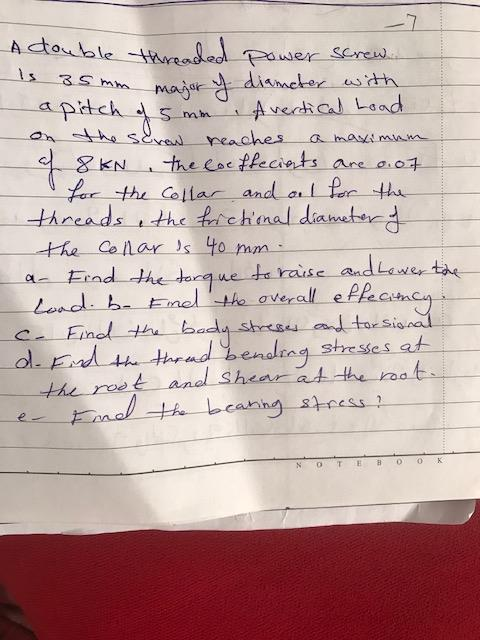 -7
A double threaded power screw
Is 35 mm major of diameter with
a pitch of 5 mm. A vertical Load
on the screw reaches a maximum
of 8 KN, the coeffecients are 0.07
for the collar and 0.1 for the
threads, the frictional diameter of
the collar Is 40 mm.
a- Find the torque to raise and Lower the
Load. b- Find the overall effeciency.
c- Find the body streses and torsional
d- Find the thread bending stresses at
the root and shear at the root.
e- Find the bearing stress?
NOTEBOOK